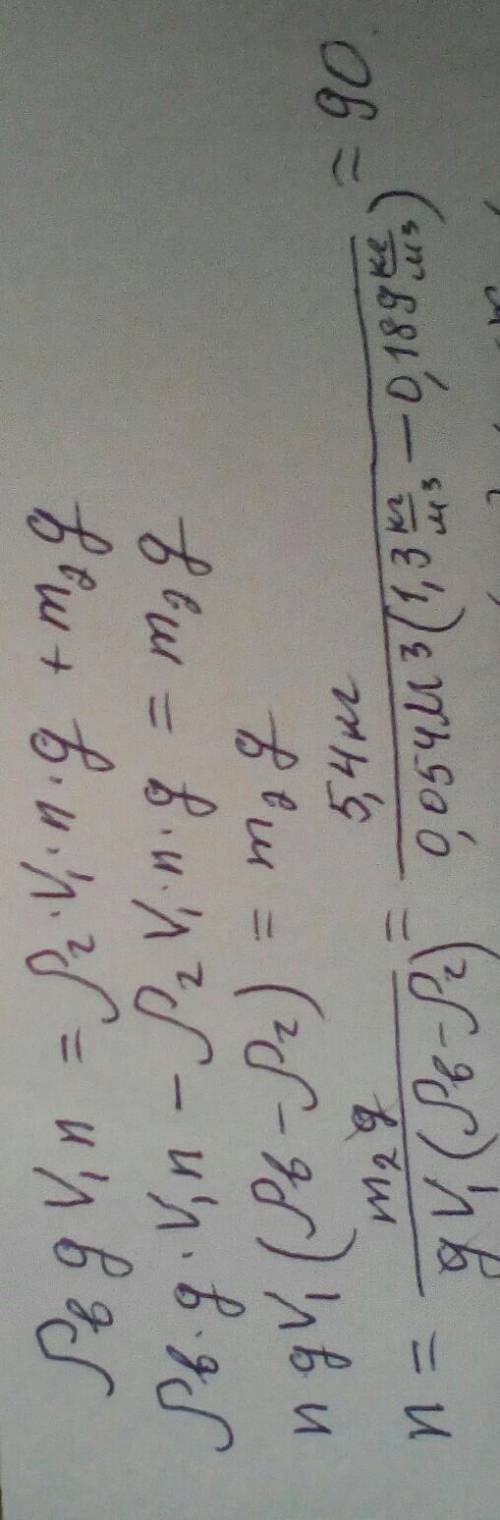 ρв g V₁ n = ρг · V₁ · n · g + m₂ g
ρв · g · V₁ n − ρг V₁ · n · g = m₂ g
n g V₁ (ρв − ρг) = m₂ g
n = m₂ g / g V₁ (ρв − ρг) = 5,4 кг / 0,054 м³ (1,3 кг/м³ − 0,189 кг/м³) = 90